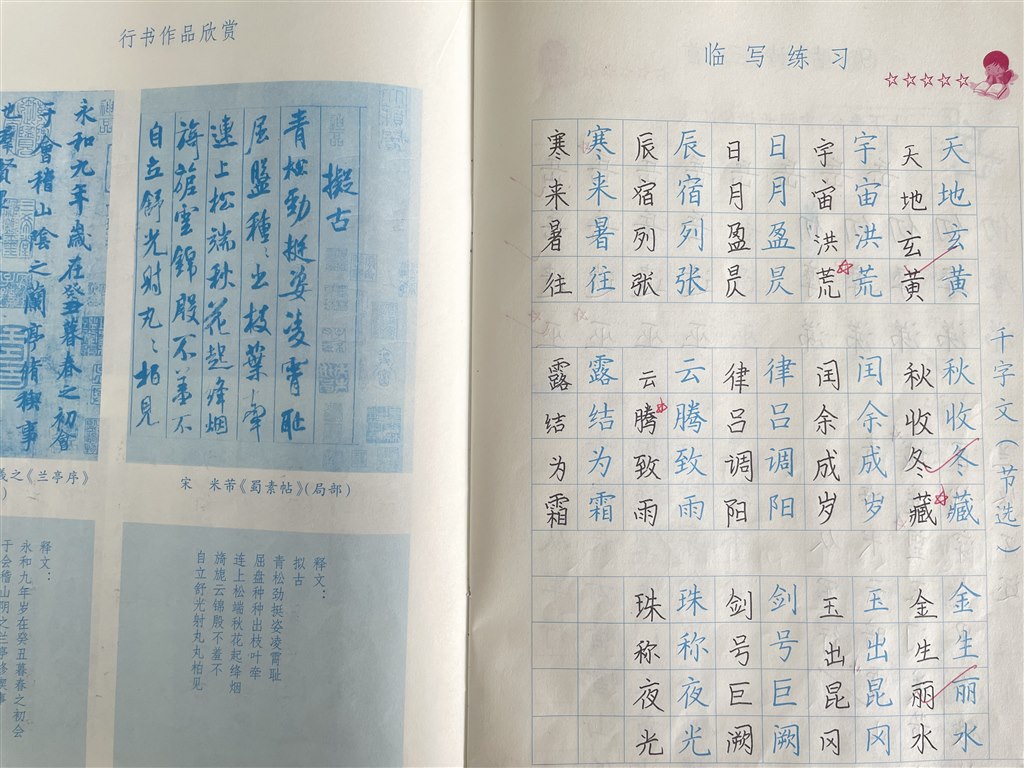 行书作品欣赏
擬古
青松勁挺姿凌霄恥
屈盤種種出枝葉牽
連上松端秋花起絳烟
旖旎雲錦殷不羞不
自立舒光射丸丸柏見
永和九年歲在癸丑暮春之初會
于會稽山陰之蘭亭脩稧事
也羣賢畢
宋 米芾《蜀素帖》(局部)
羲之《兰亭序》
)
释文:
拟古
青松劲挺姿凌霄耻
屈盘种种出枝叶牵
连上松端秋花起绛烟
旖旎云锦殷不羞不
自立舒光射丸丸柏见
释文:
永和九年岁在癸丑暮春之初会
于会稽山阴之兰亭修禊事
临写练习
千字文(节选)
天地玄黄
天地玄黄
宇宙洪荒
宇宙洪荒
日月盈昃
日月盈昃
辰宿列张
辰宿列张
寒来暑往
寒来暑往
秋收冬藏
秋收冬藏
闰余成岁
闰余成岁
律吕调阳
律吕调阳
云腾致雨
云腾致雨
露结为霜
露结为霜
金生丽水
金生丽水
玉出昆冈
玉出昆冈
剑号巨阙
剑号巨阙
珠称夜光
珠称夜光